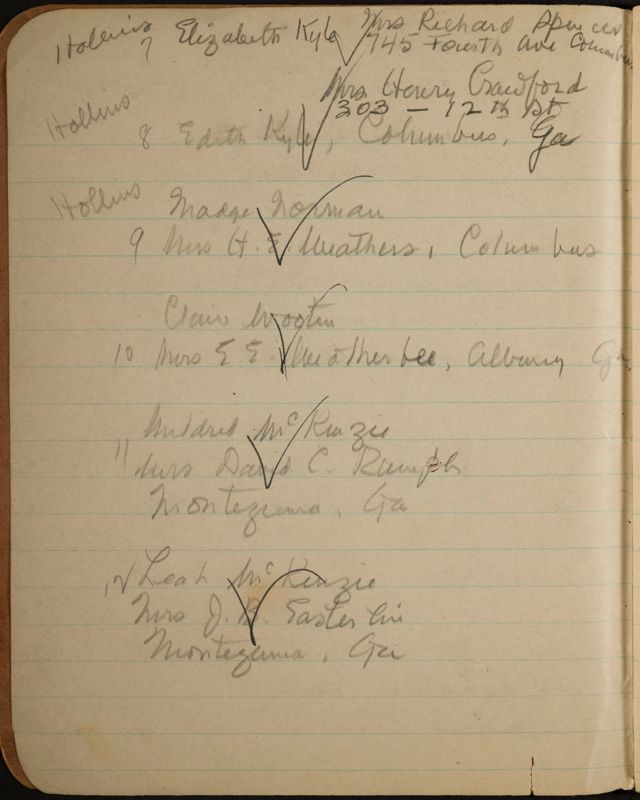 Hollins 7 Elizabeth Kyle Mrs Richard Spencer
745 Fourth Ave Columbus
Mrs Henry Crawford
303 - 12th St
Hollins 8 Edith Kyle, Columbus, Ga
Hollins Madge Norman
9 Mrs H. E. Weathers, Columbus
Claire Wooten
10 Mrs E E. Weatherbee, Albany Ga
Mildred McKenzie
11 Mrs David C. Rumph
Montezuma, Ga
12 Leah McKenzie
Mrs J. B. Easterlin
Montezuma, Ga